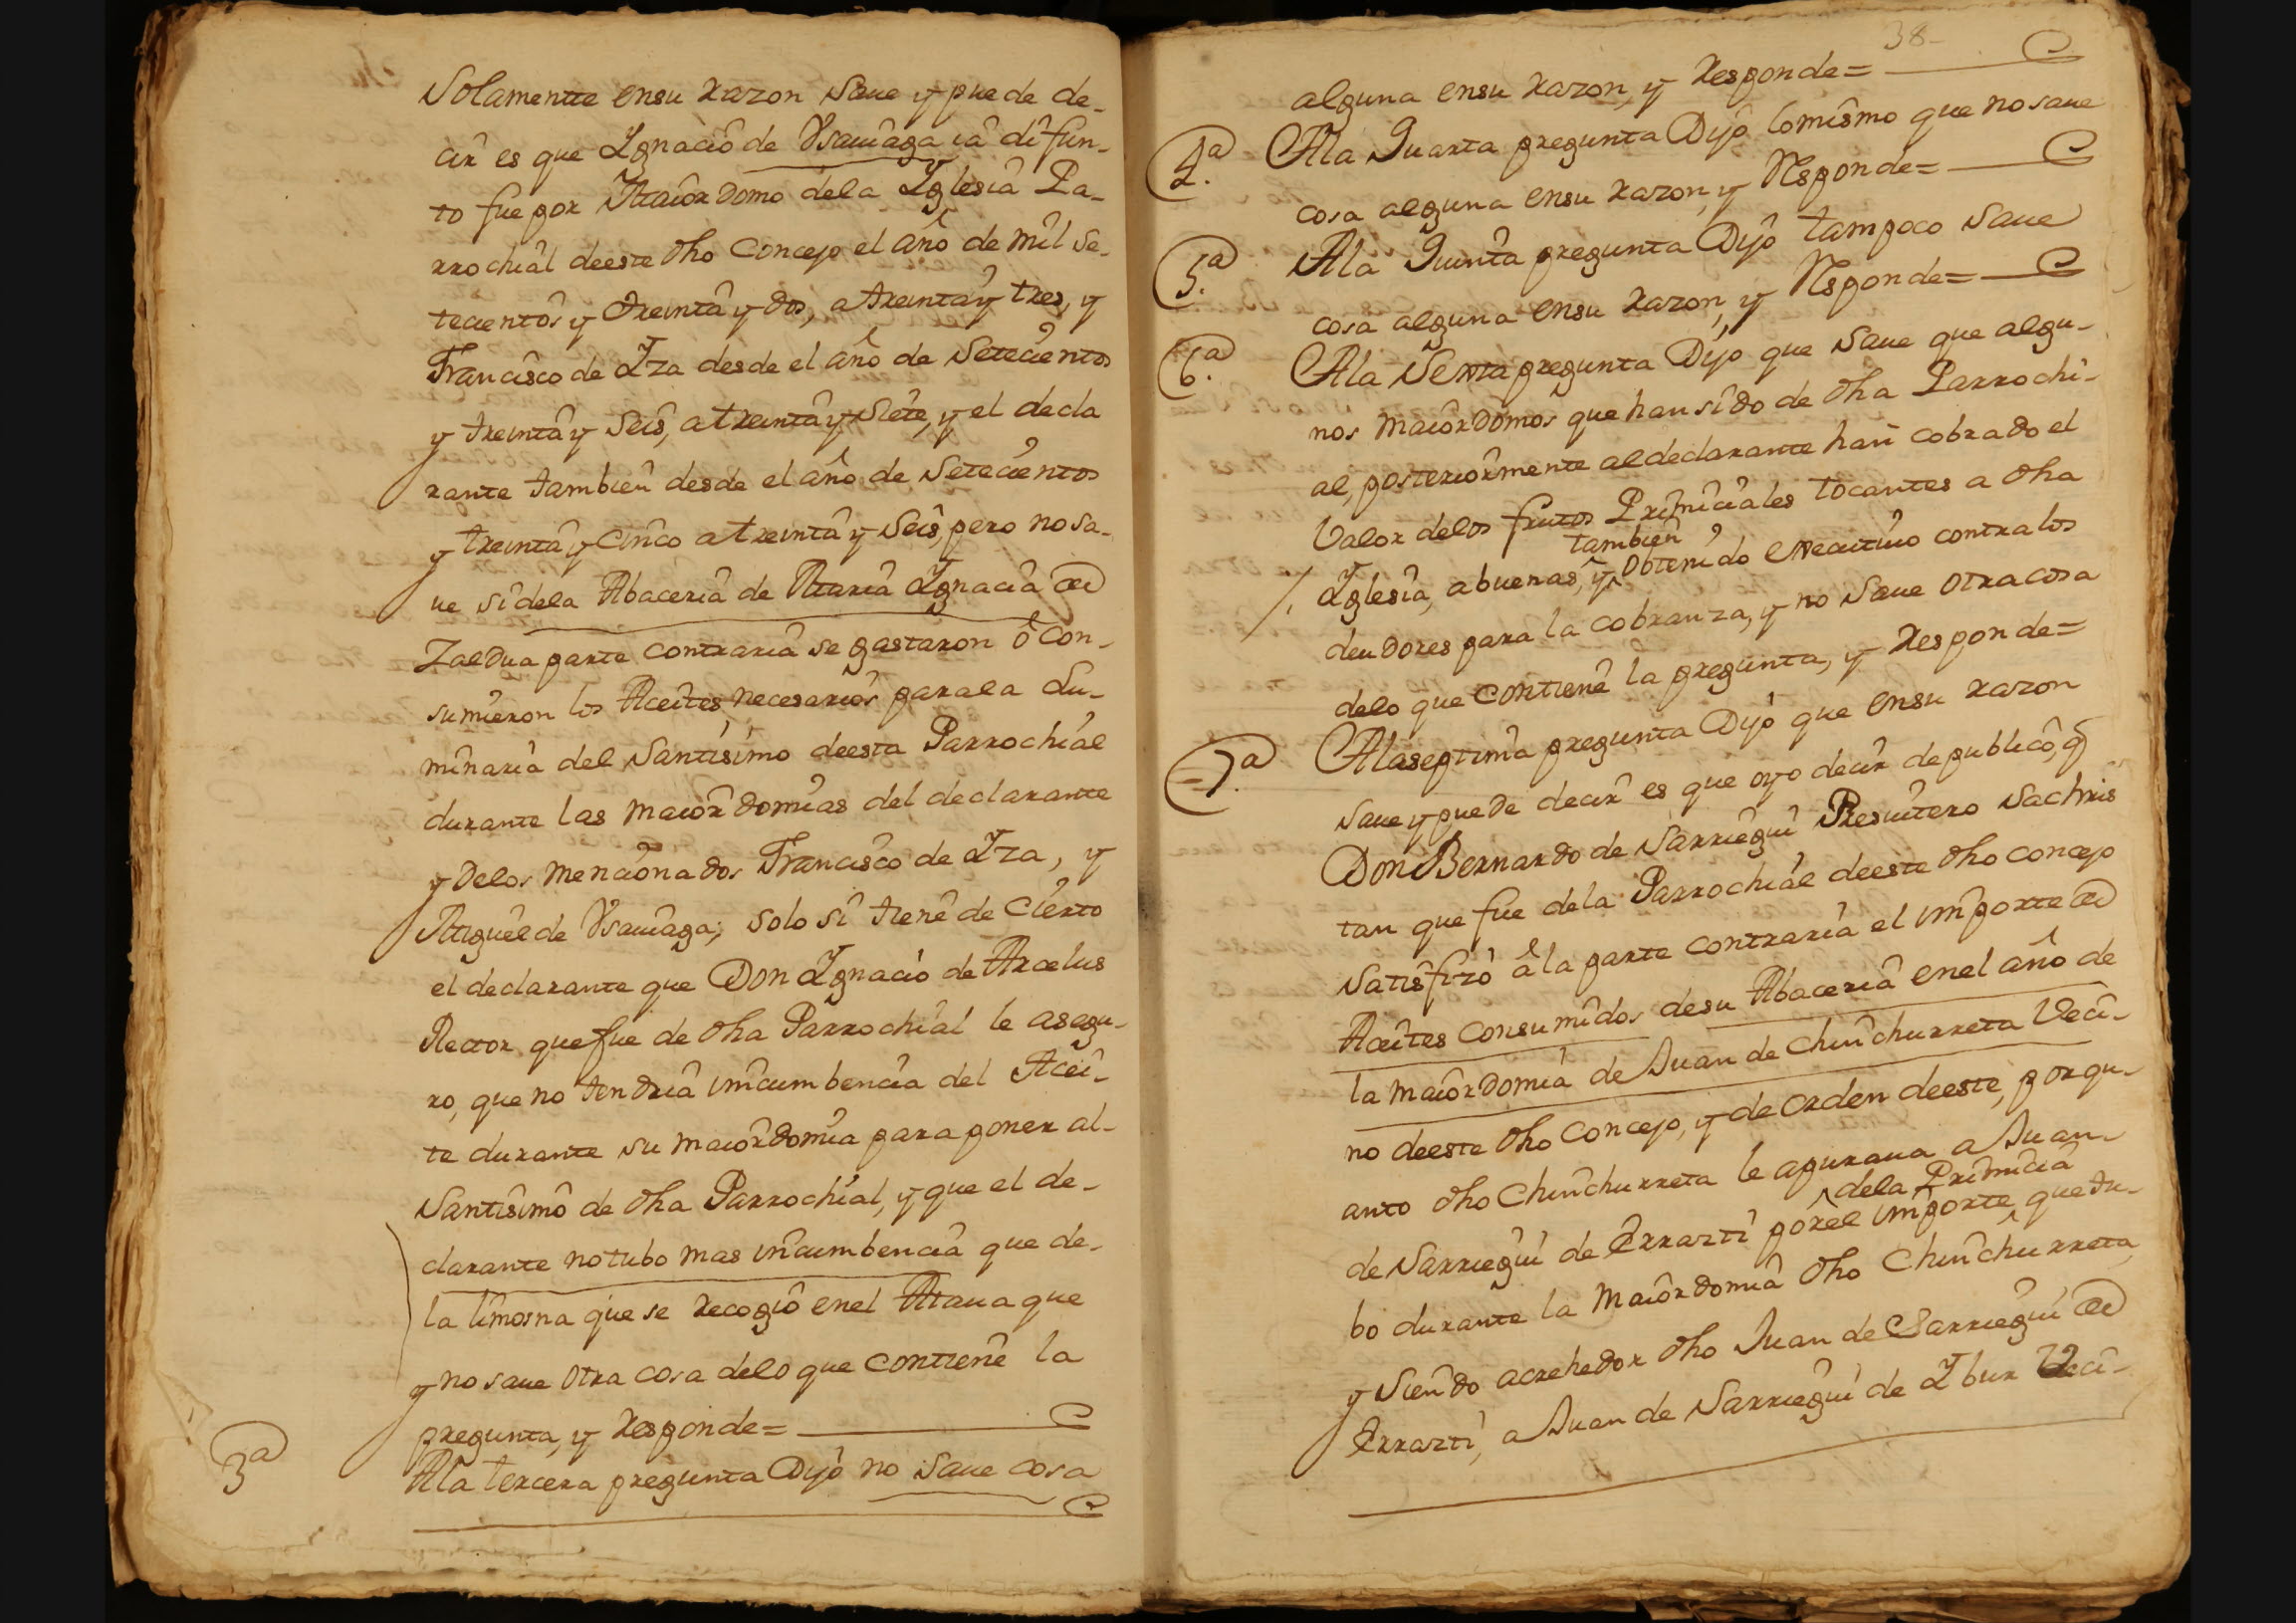 Solamentte ensu razon Saue y puede de-
cir es que Ygnacio de Ysauiaga ia difun-
to fue por Maiordomo dela Yglesia Pa-
rrochial deeste dho Concejo el año de mil se-
tecientos y treinta y dos, a treinta y tres, y
Francisco de Yza desde el año de Setecientos
y treinta y seis, a treinta y siete, y el decla
rante tambien desde el año de Setecientos
y treinta y cinco a treinta y seis, pero no sa-
ue si dela Abaceria de Maria Ygnacia de
Zaldua parte contraria se gastaron ô con-
sumieron los Aceites necesarios para la Lu-
minaria del Santisimo deesta Parrochial
durante las maiordomias del declarante
y delos mencionados Francisco de Yza, y
Miguel de Ysauiaga; solo si tiene de Cierto
el declarante que Don Ygnacio de Arcelus
Rector que fue de dha Parrochial le asegu-
ro, que no tendria incumbencia del Acei-
te durante su maiordomia para poner al-
Santisimo de dha Parrochial, y que el de-
clarante no tubo mas incumbencia que de-
la limosna que se recogio enel Maua que
y no saue otra cosa delo que contiene la
pregunta, y Responde=
3ª
Ala tercera pregunta Dijo no saue cosa
38-
alguna ensu razon, y Responde=
4ª.
Ala Quarta pregunta Dijo lo mismo que no saue
cosa alguna ensu razon, y Responde=
5ª.
Ala Quinta pregunta Dijo tampoco saue
cosa alguna ensu razon, y Responde=
6ª.
Ala Sexta pregunta Dijo que saue que algu-
nos maiordomos que han sido de dha Parrochi-
al, posteriormente al declarante han cobrado el
Valor delos frutos Primiciales tocantes a dha
también
Yglesia, a buenas, y obtenido executivo contra los
deudores para la cobranza, y no saue otra cosa
delo que contiene la pregunta, y Responde=
7ª.
Ala septima pregunta Dijo que ensu razon
saue y puede decir es que oyo decir de publico, q
Don Bernardo de Sarriegui Presuitero Sachris
tan que fue dela Parrochial deeste dho concejo
satisfizo â la parte contraria el importe de
Aceites consumidos desu Abaceria enel año de
la maiordomia de Juan de Chinchurreta Veci-
no deeste dho Concejo, y de orden deeste, porqu-
anto dho Chinchurreta le apuraua a Juan-
dela Primicia
de Sarriegui de Errazti por el importe que tu-
bo durante la Maiordomia dho Chinchurreta,
y siendo acrehedor dho Juan de Sarriegui de
Errazti, a Juan de Sarriegui de Ybur Veci-